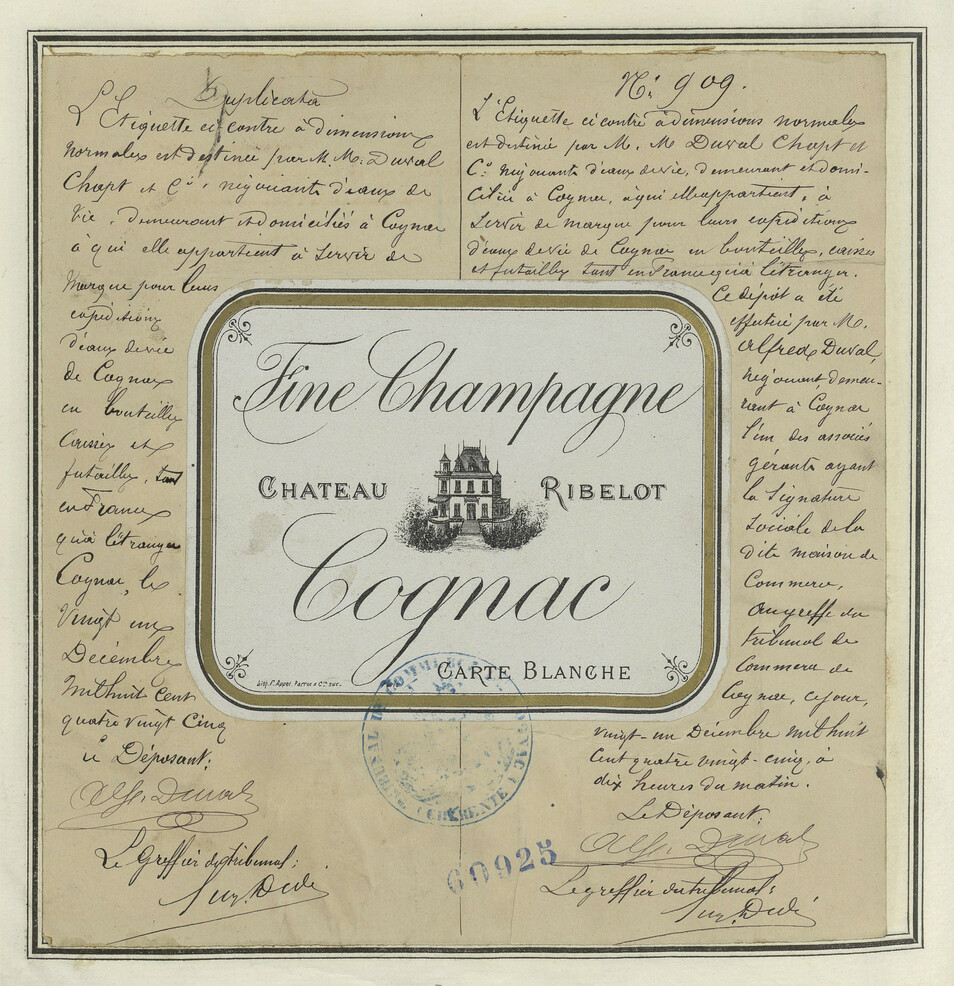 Duplicata
L'Etiquette ci contre à dimensions
normales est destinée par M. M. Duval
Chapt et Cie, négociants d'eaux de
vie, demeurant et domiciliés à Cognac
à qui elle appartient à servir de
marque pour leurs
expéditions
d'eaux de vie
de Cognac
en bouteilles
caisses et
futailles, tant
en France
qu'à l'étranger
Cognac, le
Vingt un
Décembre
mil huit cent
quatre vingt cinq
Le Déposant:
Alf. Duval
Le Greffier du tribunal:
N: 909.
L'Etiquette ci contre à dimensions normales
est destinée par M. M Duval Chapt et
Cie négociants d'eaux de vie, demeurant et domi-
ciliés à Cognac, à qui elle appartient, à
servir de marque pour leurs expéditions
d'eaux de vie de Cognac en bouteilles, caisses
et futailles tant en France qu'à l'étranger.
Ce dépôt a été
effectué par M.
Alfred Duval,
négociant demeu-
rant à Cognac
l'un des associés
gérants ayant
la signature
sociale de la
dite maison de
Commerce,
au greffe du
tribunal de
Commerce de
Cognac, ce jour,
vingt-un Décembre mil huit
cent quatre vingt-cinq, à
dix heures du matin.
Le Déposant:
Alf. Duval
Le greffier du tribunal:
Fine Champagne
CHATEAU RIBELOT
Cognac
CARTE BLANCHE
Lith. F. Appel. Parrot & Cie suc.
TRIBUNAL DE COMMERCE COGNAC CHARENTE
60925